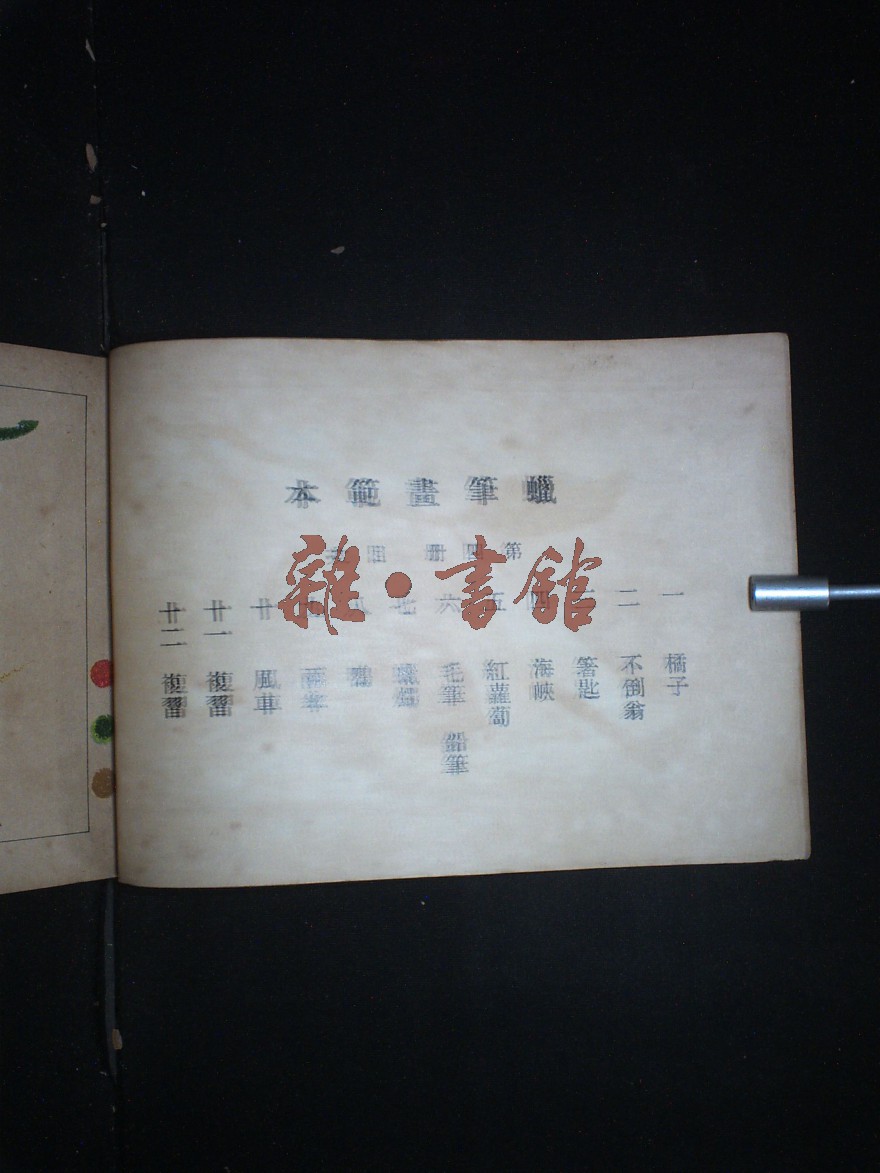 蠟筆畫範本
第四册 目
雜·書館
一 橘子
二 不倒翁
三 箸匙
四 海峽
五 紅蘿蔔
六 毛筆 鉛筆
七 蠟燭
八
九 雨傘
十 風車
十一 複習
十二 複習